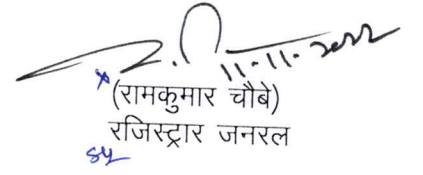 11.11.2022
(रामकुमार चौबे)
रजिस्ट्रार जनरल